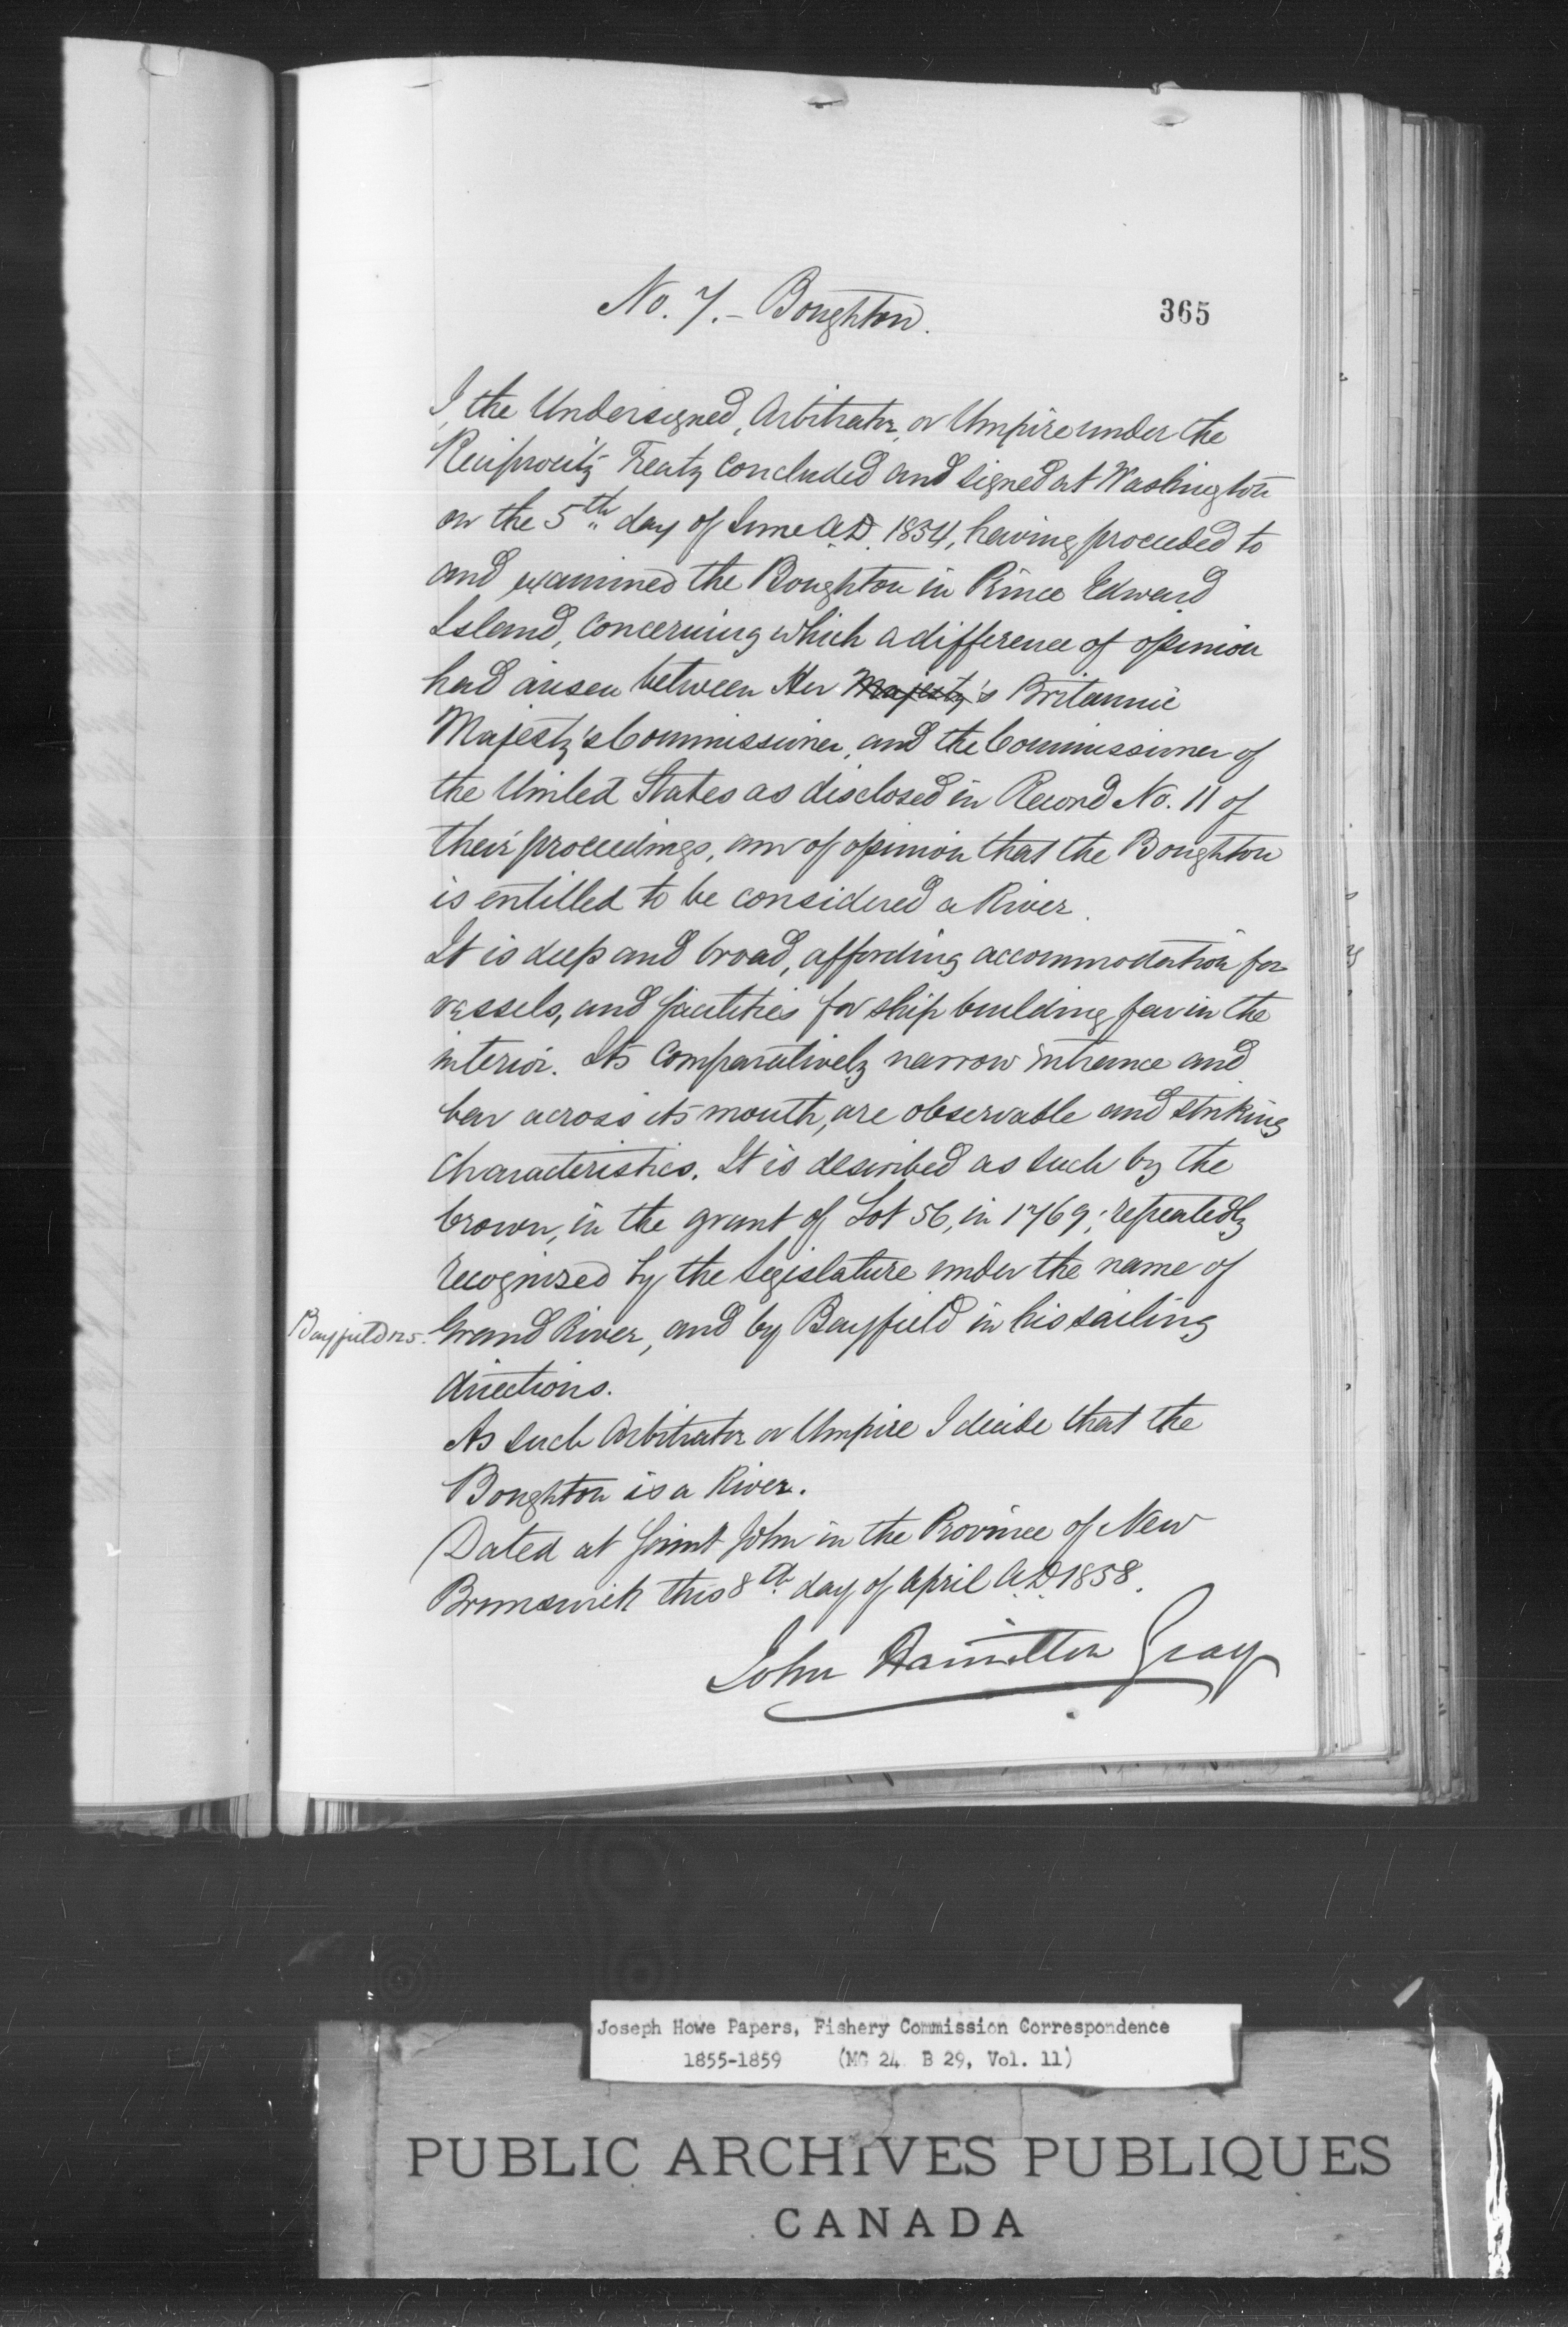 No. 7. – Boughton.
365
I, the Undersigned, Arbitrator, or Umpire under the
Reciprocity Treaty concluded and signed at Washington
on the 5th day of June A.D. 1854, having proceeded to
and examined the Boughton in Prince Edward
Island, concerning which a difference of opinion
had arisen between Her Majesty's Britannic
Majesty's Commissioner, and the Commissioner of
the United States as disclosed in Record No. 11 of
their proceedings, am of opinion that the Boughton
is entitled to be considered a River.
It is deep and broad, affording accommodation for
vessels, and facilities for ship building far in the
interior. Its comparatively narrow entrance and
bar across its mouth, are observable and striking
characteristics. It is described as such by the
Crown, in the grant of Lot 56, in 1769; repeatedly
recognised by the Legislature under the name of
Bayfield 125. Grand River, and by Bayfield in his sailing
directions.
As such Arbitrator or Umpire I decide that the
Boughton is a River.
Dated at Saint John in the Province of New
Brunswick this 8th day of April A.D. 1858.
John Hamilton Gray
Joseph Howe Papers, Fishery Commission Correspondence
1855-1859 (MG 24 B 29, Vol. 11)
PUBLIC ARCHIVES PUBLIQUES
CANADA